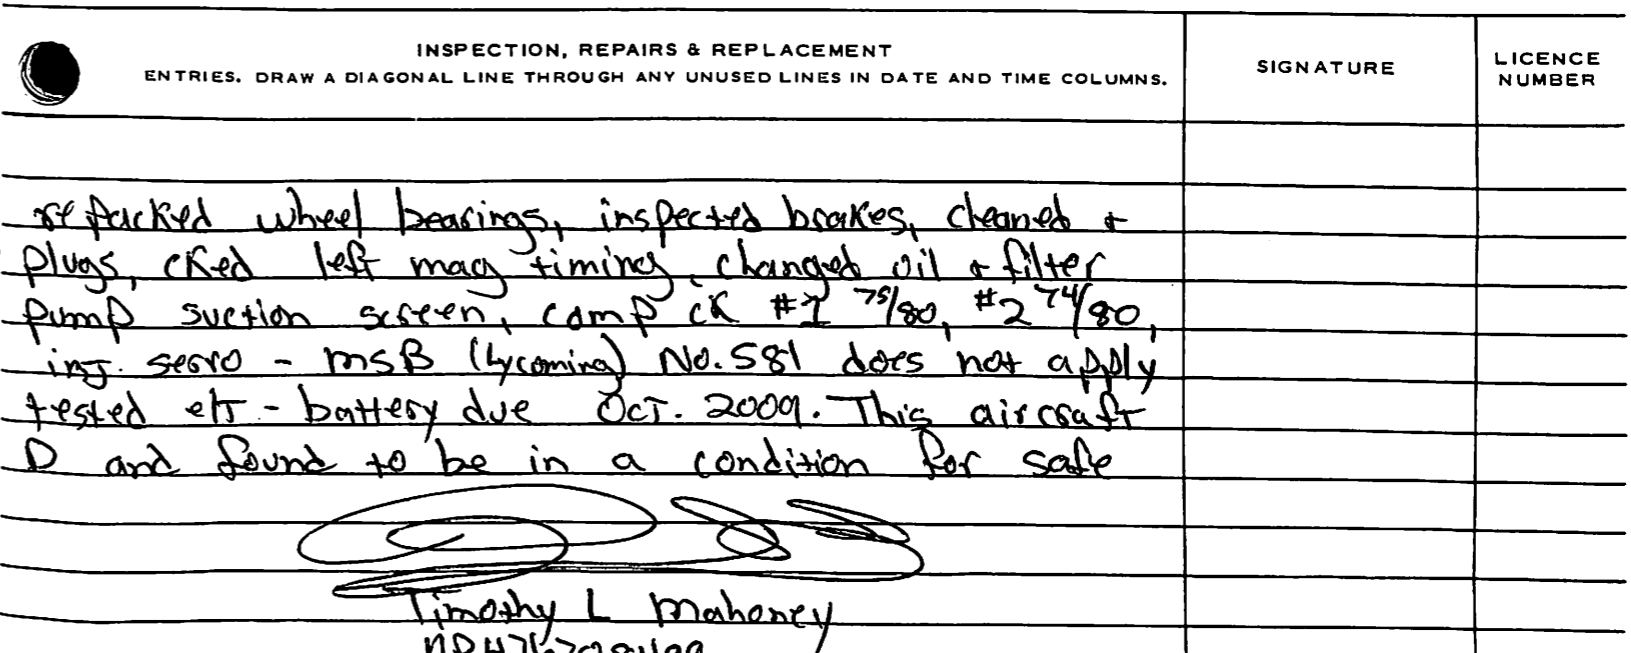 INSPECTION, REPAIRS & REPLACEMENT
ENTRIES. DRAW A DIAGONAL LINE THROUGH ANY UNUSED LINES IN DATE AND TIME COLUMNS.
SIGNATURE
LICENCE
NUMBER
repacked wheel bearings, inspected brakes, cleaned +
plugs, cked left mag timing, changed oil + filter
pump suction screen, comp ck #1 75/80, #2 74/80,
inj. servo - MSB (Lycoming) No. 581 does not apply
tested elt - battery due Oct. 2009. This aircraft
D and found to be in a condition for safe
Timothy L Mahoney